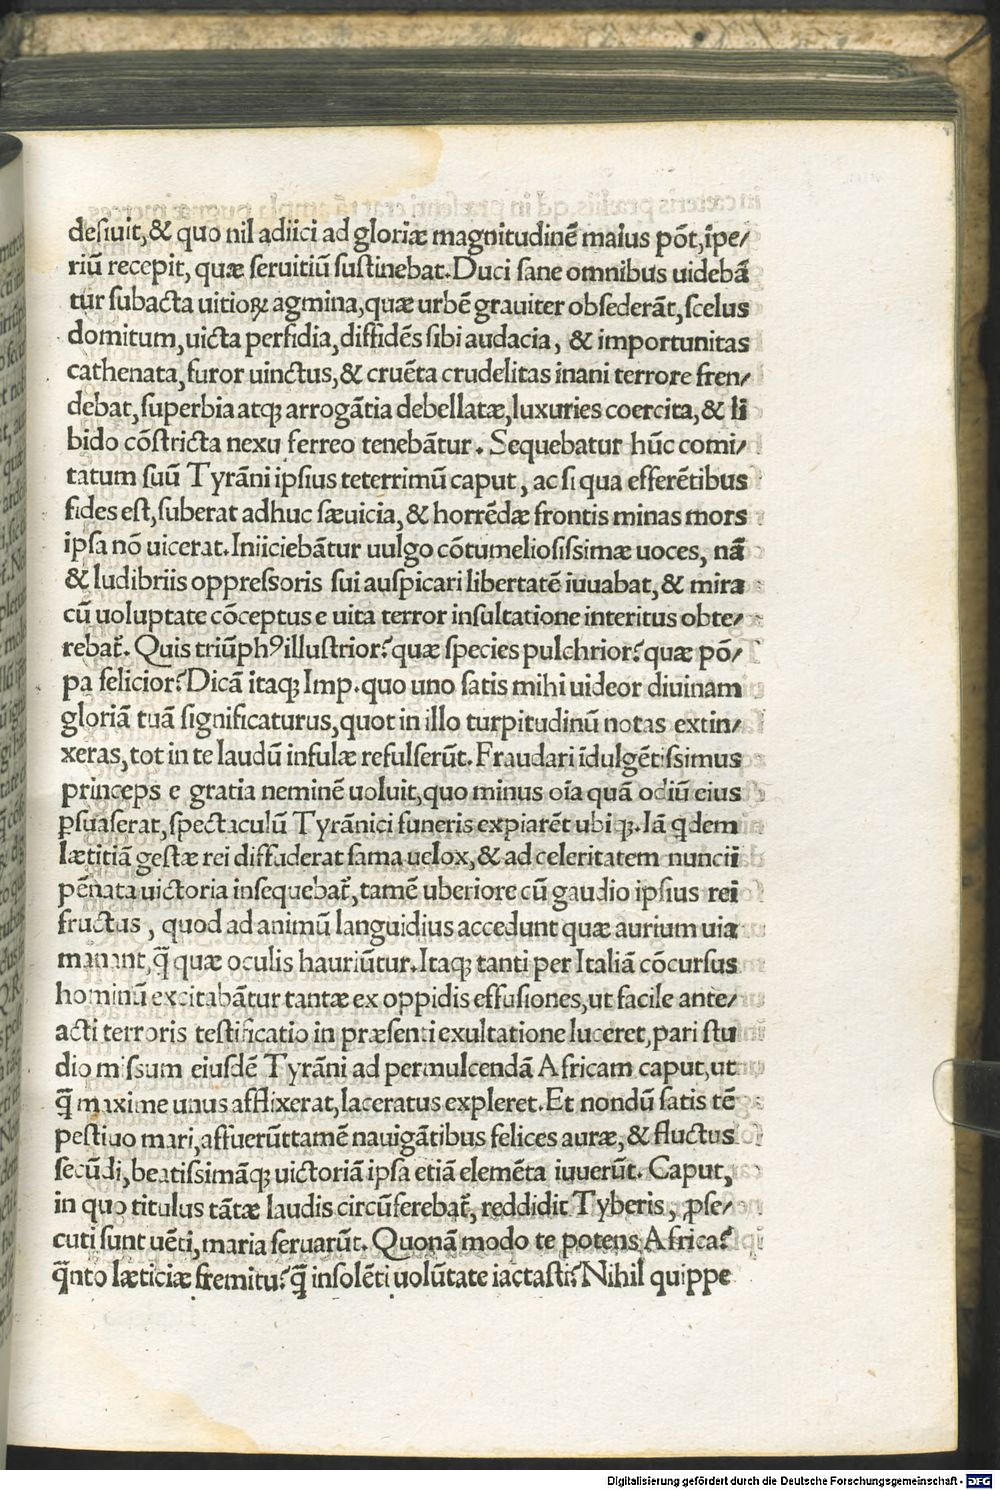 desiuit,& quo nil adiici ad gloriæ magnitudinē maius pōt,īpe/
riū recepit, quæ seruitiū sustinebat.Duci sane omnibus uidebā
tur subacta uitioꝝ agmina,quæ urbē grauiter obsederāt,scelus
domitum,uicta perfidia,diffidēs sibi audacia, & importunitas
cathenata,furor uinctus,& cruēta crudelitas inani terrore fren/
debat,superbia atqꝫ arrogātia debellatæ,luxuries coercita,& li
bido cōstricta nexu ferreo tenebātur. Sequebatur hūc comi/
tatum suū Tyrāni ipsius teterrimū caput, ac si qua efferētibus
fides est,suberat adhuc sæuicia,& horrēdæ frontis minas mors
ipsa nō uicerat.Iniiciebātur uulgo cōtumeliosissimæ uoces, nā
& ludibriis oppressoris sui auspicari libertatē iuuabat,& mira
cū uoluptate cōceptus e uita terror insultatione interitus obte/
rebat̄. Quis triūphꝰ illustrior?quæ species pulchrior?quæ pō/
pa felicior?Dicā itaqꝫ Imp.quo uno satis mihi uideor diuinam
gloriā tuā significaturus,quot in illo turpitudinū notas extin/
xeras,tot in te laudū infulæ refulserūt.Fraudari īdulgētissimus
princeps e gratia neminē uoluit,quo minus oīa quā odiū eius
ꝑsuaserat,spectaculū Tyrānici funeris expiarēt ubiqꝫ.Iā qͥdem
lætitiā gestæ rei diffuderat fama uelox,& ad celeritatem nuncii
pēnata uictoria insequebat̄,tamē uberiore cū gaudio ipsius rei
fructus, quod ad animū languidius accedunt quæ aurium uia
manant,q̄ quæ oculis hauriūtur.Itaqꝫ tanti per Italiā cōcursus
hominū excitabātur tantæ ex oppidis effusiones,ut facile ante/
acti terroris testificatio in præsenti exultatione luceret,pari stu
dio missum eiusdē Tyrāni ad permulcendā Africam caput,ut
q̄ maxime unus afflixerat,laceratus expleret.Et nondū satis tē
pestiuo mari,affuerūttamē nauigātibus felices auræ,& fluctus
secūdi,beatissimāqꝫ uictoriā ipsa etiā elemēta iuuerūt. Caput,
in quo titulus tātæ laudis circūferebat̄, reddidit Tyberis, ꝓse/
cuti sunt uēti,maria seruarūt. Quonā modo te potens Africa?
q̄nto læticiæ fremitu?q̄ insolēti uolūtate iactasti?Nihil quippe
Digitalisierung gefördert durch die Deutsche Forschungsgemeinschaft - DFG